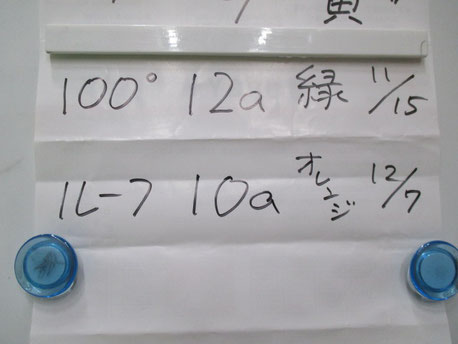 黄
100° 12a 緑 11/15
ルーフ 10a オレンジ 12/7